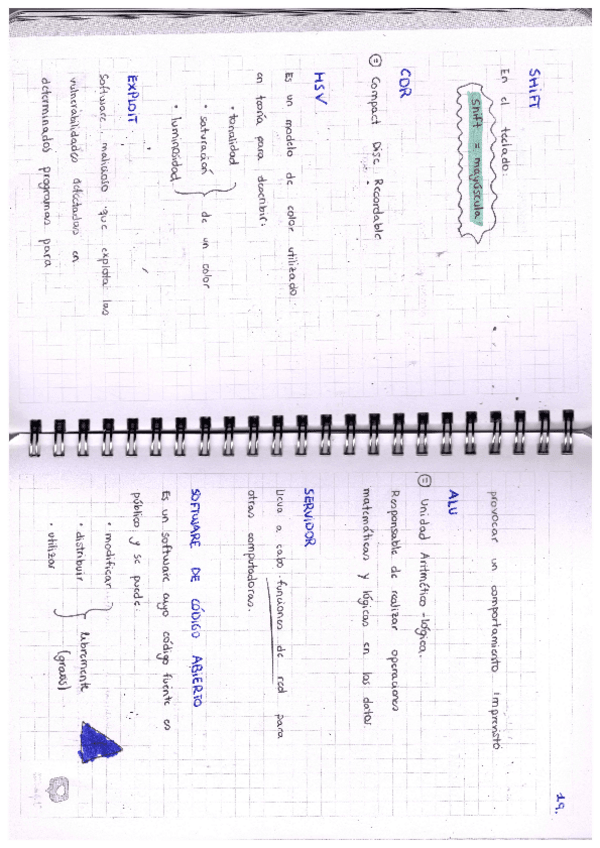 SHIFT
En el teclado:
shift = mayúscula
CDR
= Compact Disc Recordable
HSV
Es un modelo de color utilizado
en teoría para describir:
• tonalidad
• saturación } de un color
• luminosidad
EXPLOIT
Software malicioso que explota las
vulnerabilidades detectadas en
determinados programas para
19.
provocar un comportamiento imprevisto
ALU
= Unidad Aritmético-lógica.
Responsable de realizar operaciones
matemáticas y lógicas en los datos
SERVIDOR
Lleva a cabo funciones de red para
otras computadoras.
SOFTWARE DE CÓDIGO ABIERTO
Es un software cuyo código fuente es
público y se puede:
• modificar
• distribuir } libremente
• utilizar (gratis)